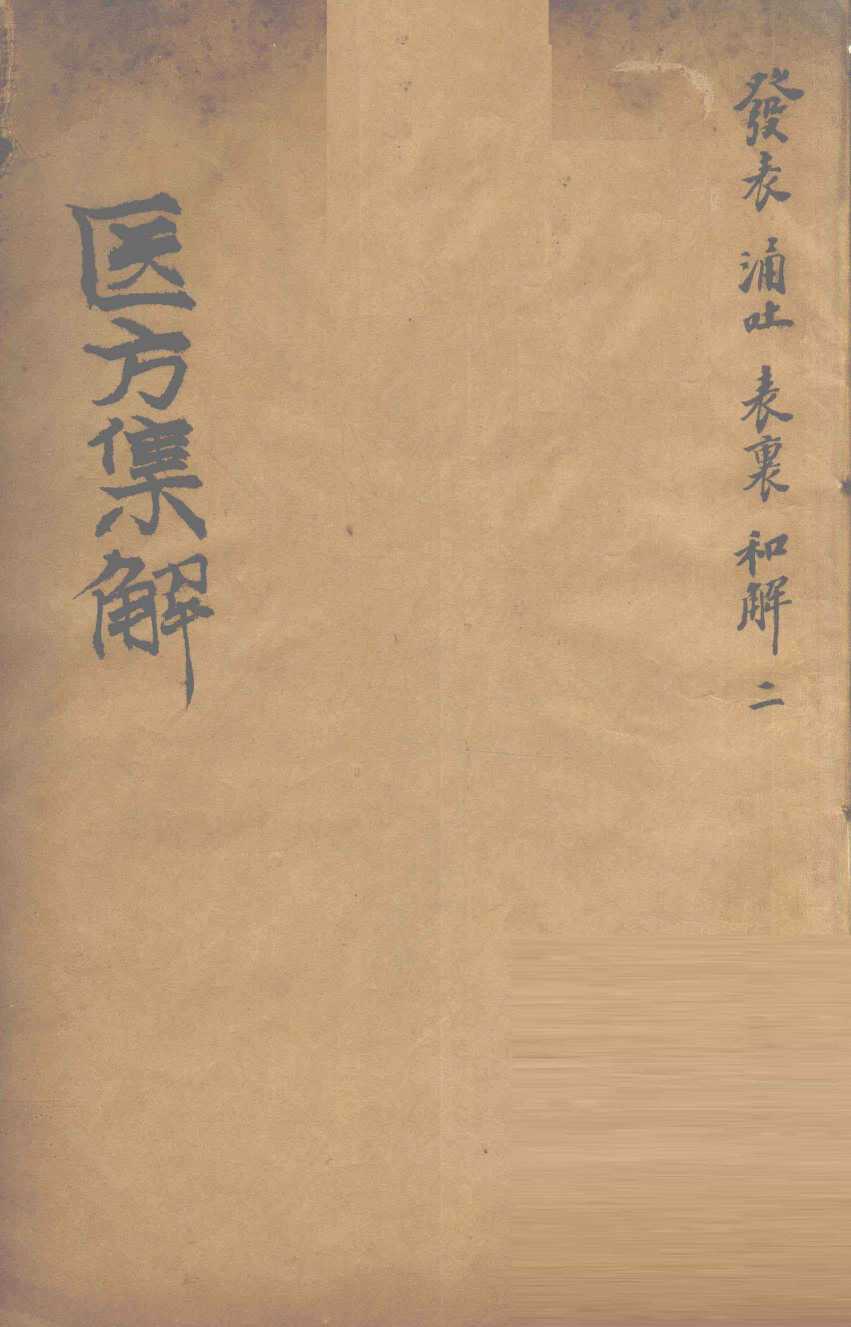 發表 涌吐 表裏 和解 二
医方集解